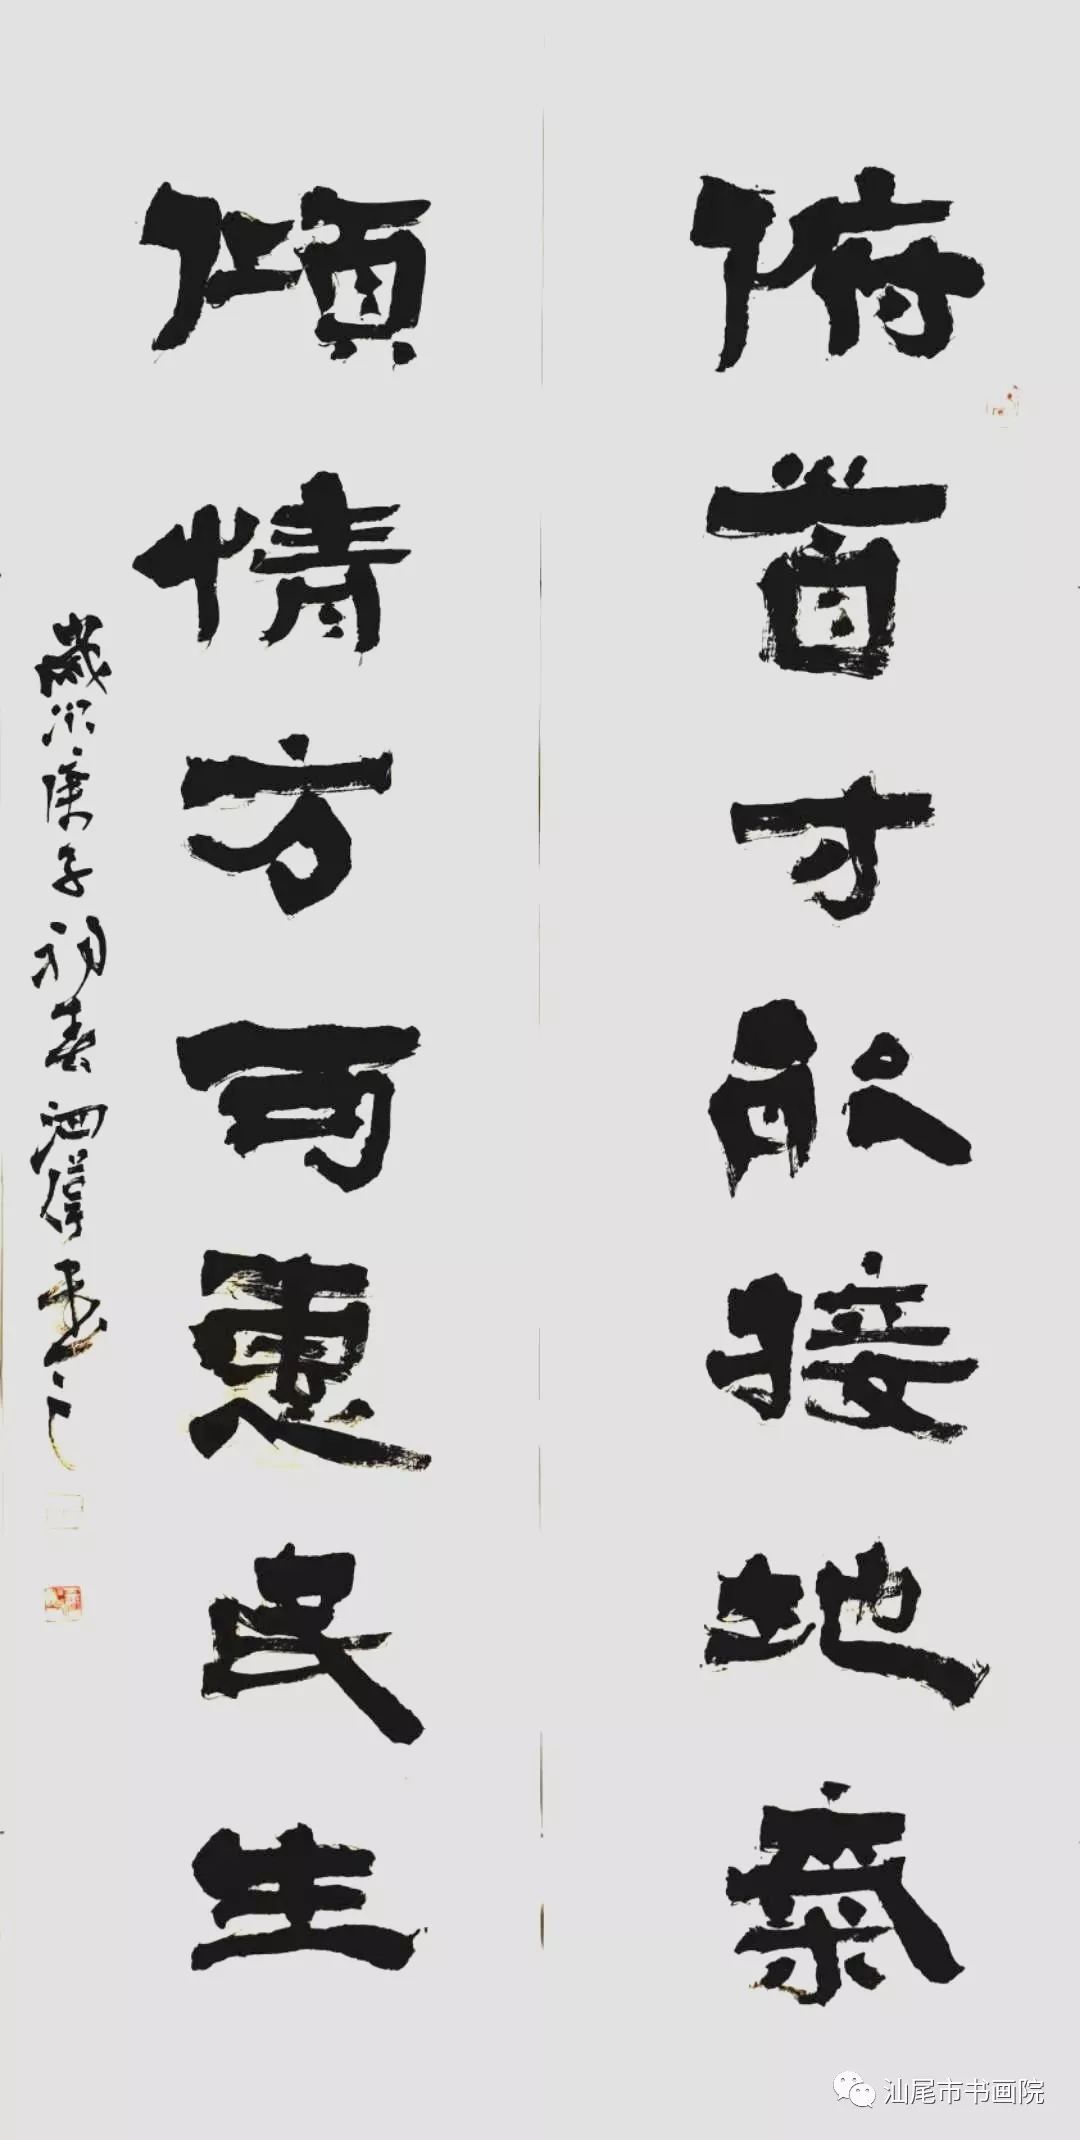 俯首才能接地氣
傾情方可惠民生
歲次庚子初春泗澤書之
汕尾市书画院